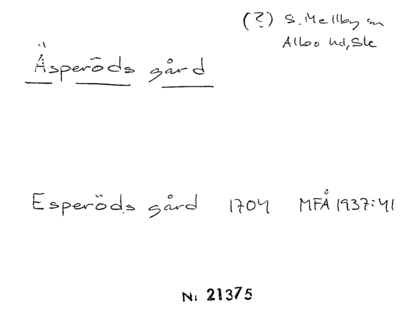 (?) S. Mellby sn
Albo hd, Sk
Äsperöds gård
Esperöds gård 1704 MFÅ 1937:41
Ni 21375